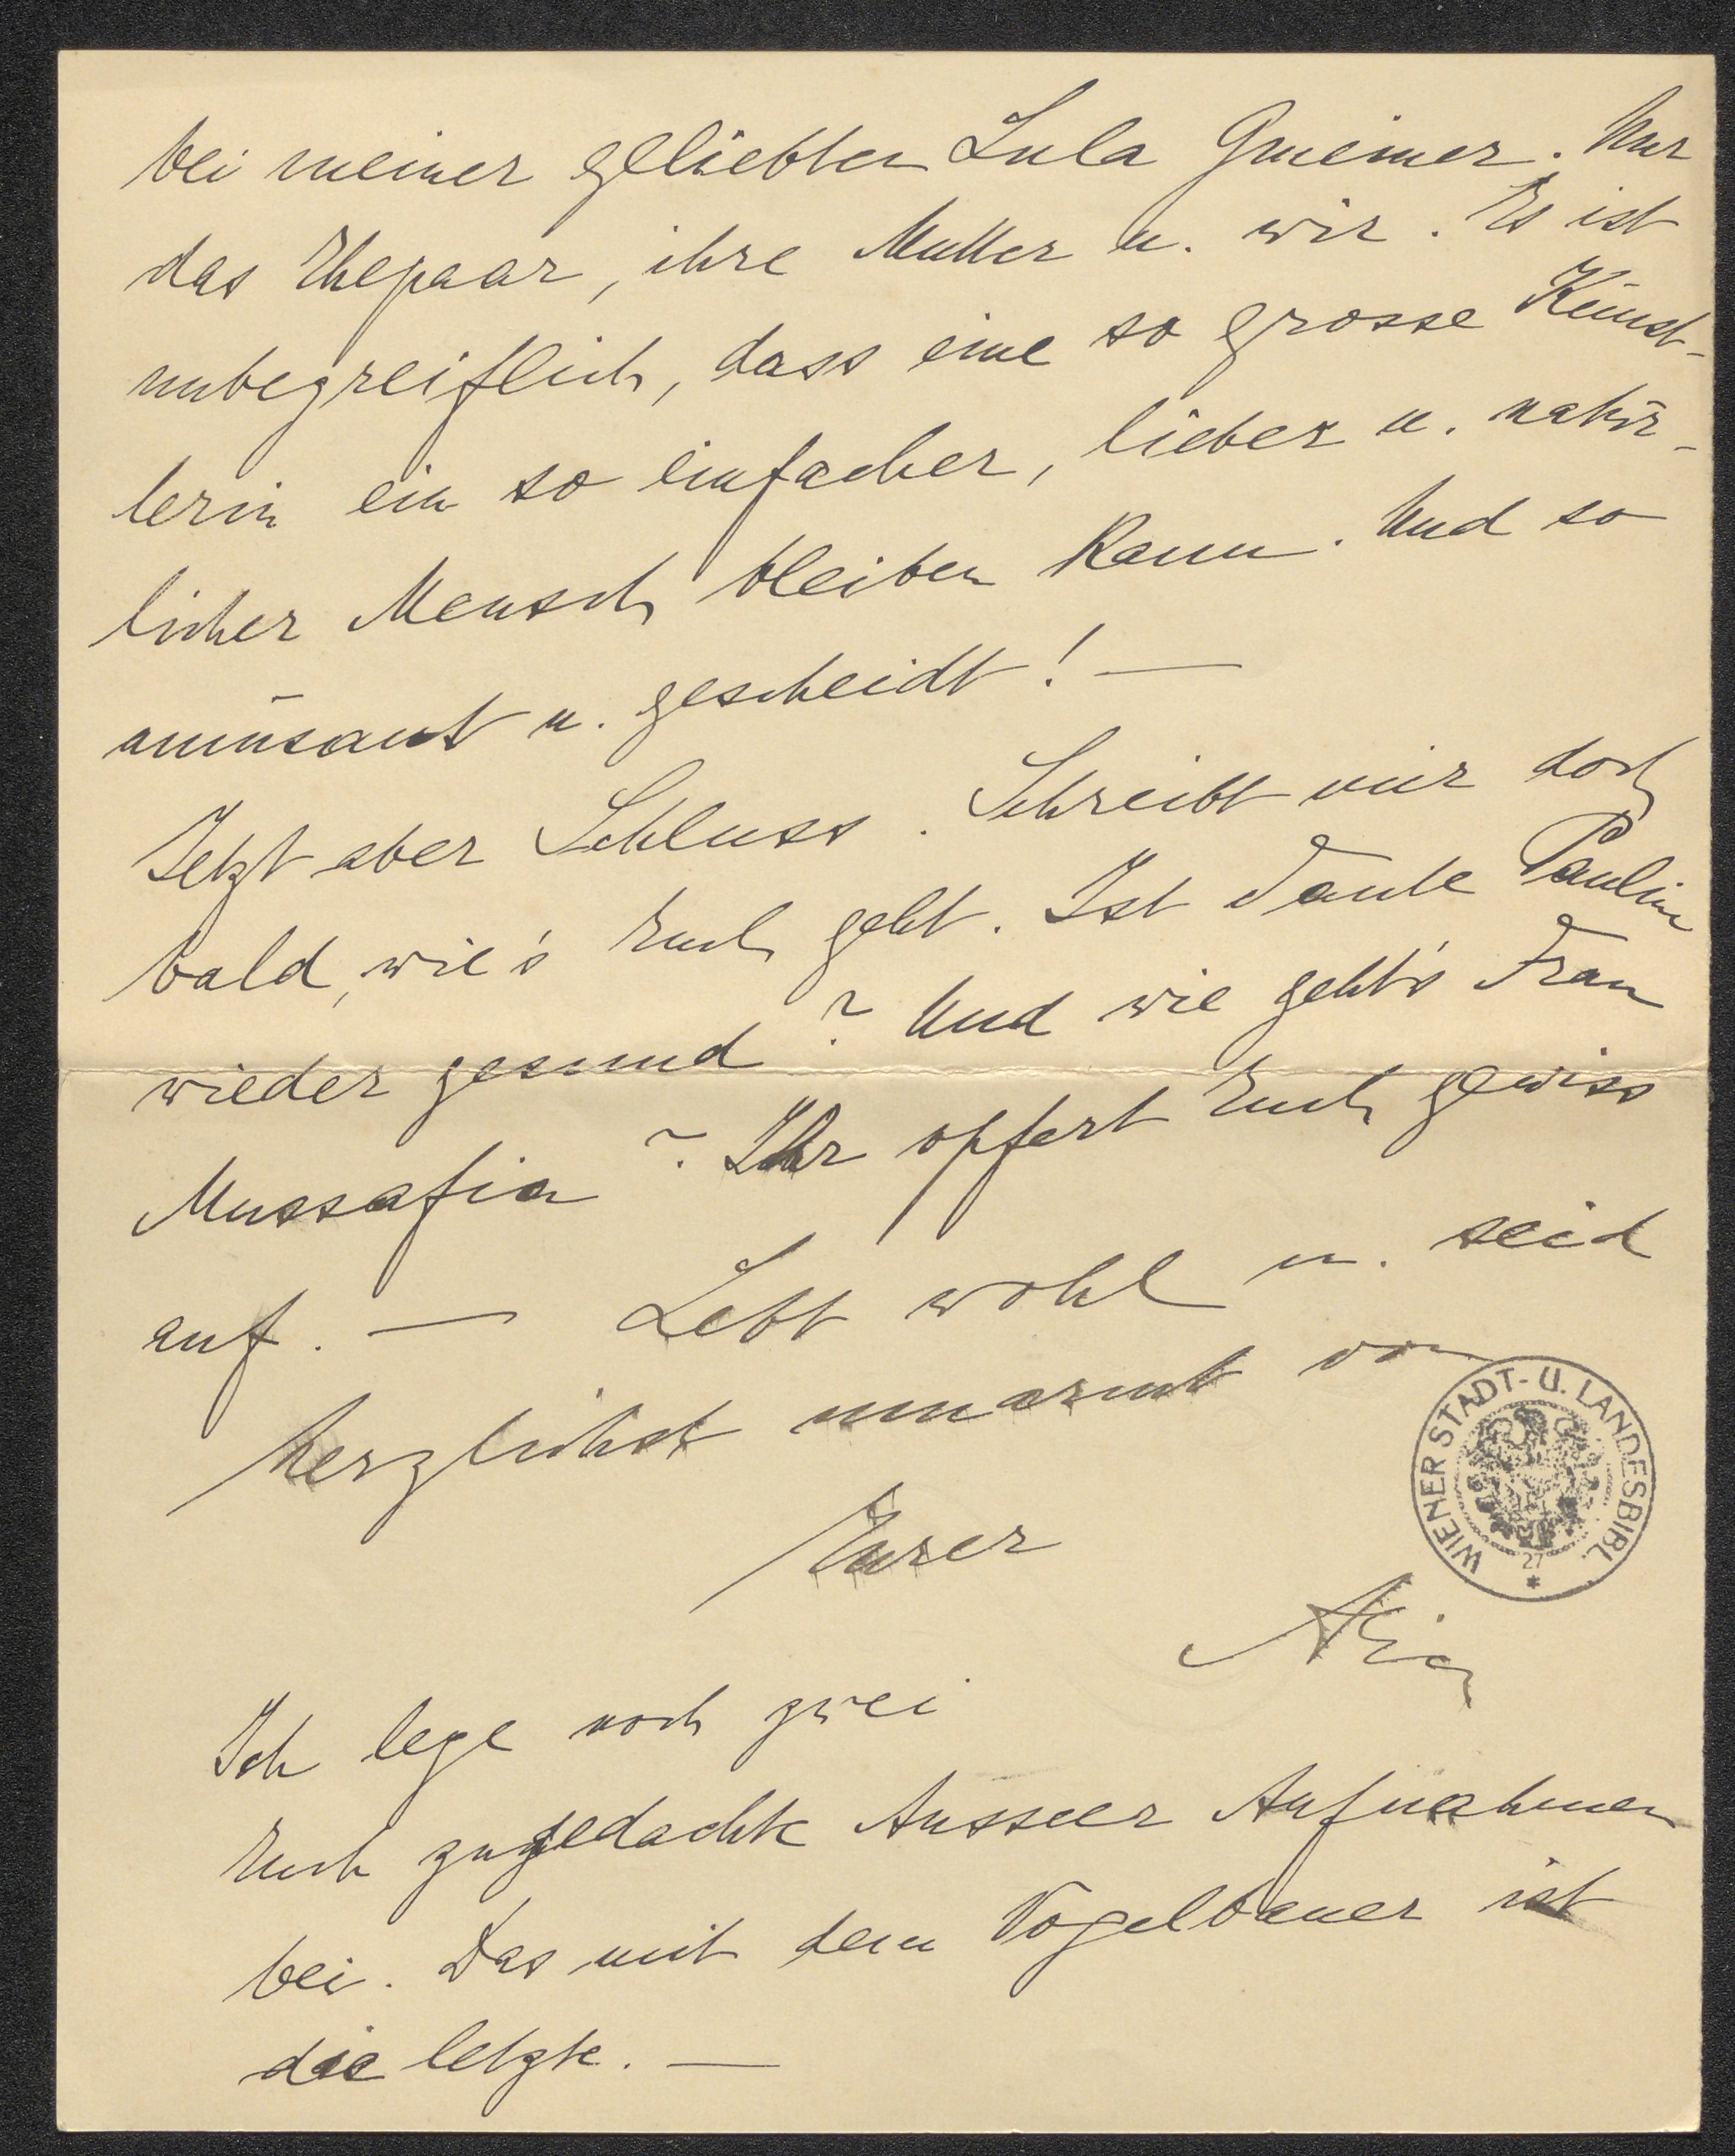 bei meiner geliebten Lula Gmeiner. Nur
das Ehepaar, ihre Mutter u. wir. Es ist
unbegreiflich, dass eine so grosse Künst-
lerin ein so einfacher, lieber u. natür-
licher Mensch bleiben kann. Und so
amüsant u. gescheidt! —
Jetzt aber Schluss. Schreibt mir doch
bald, wie's Euch geht. Ist Tante Pauline
wieder gesund? Und wie geht's Frau
Mussafia? Ihr opfert Euch gewiss
auf. — Lebt wohl u. seid
herzlichst umarmt von
Eurer
WIENER STADT- U. LANDESBIBL.
27
Ich lege noch zwei
Euch zugedachte Ausseer Aufnahmen
bei. Das mit dem Vogelbauer ist
die letzte. —